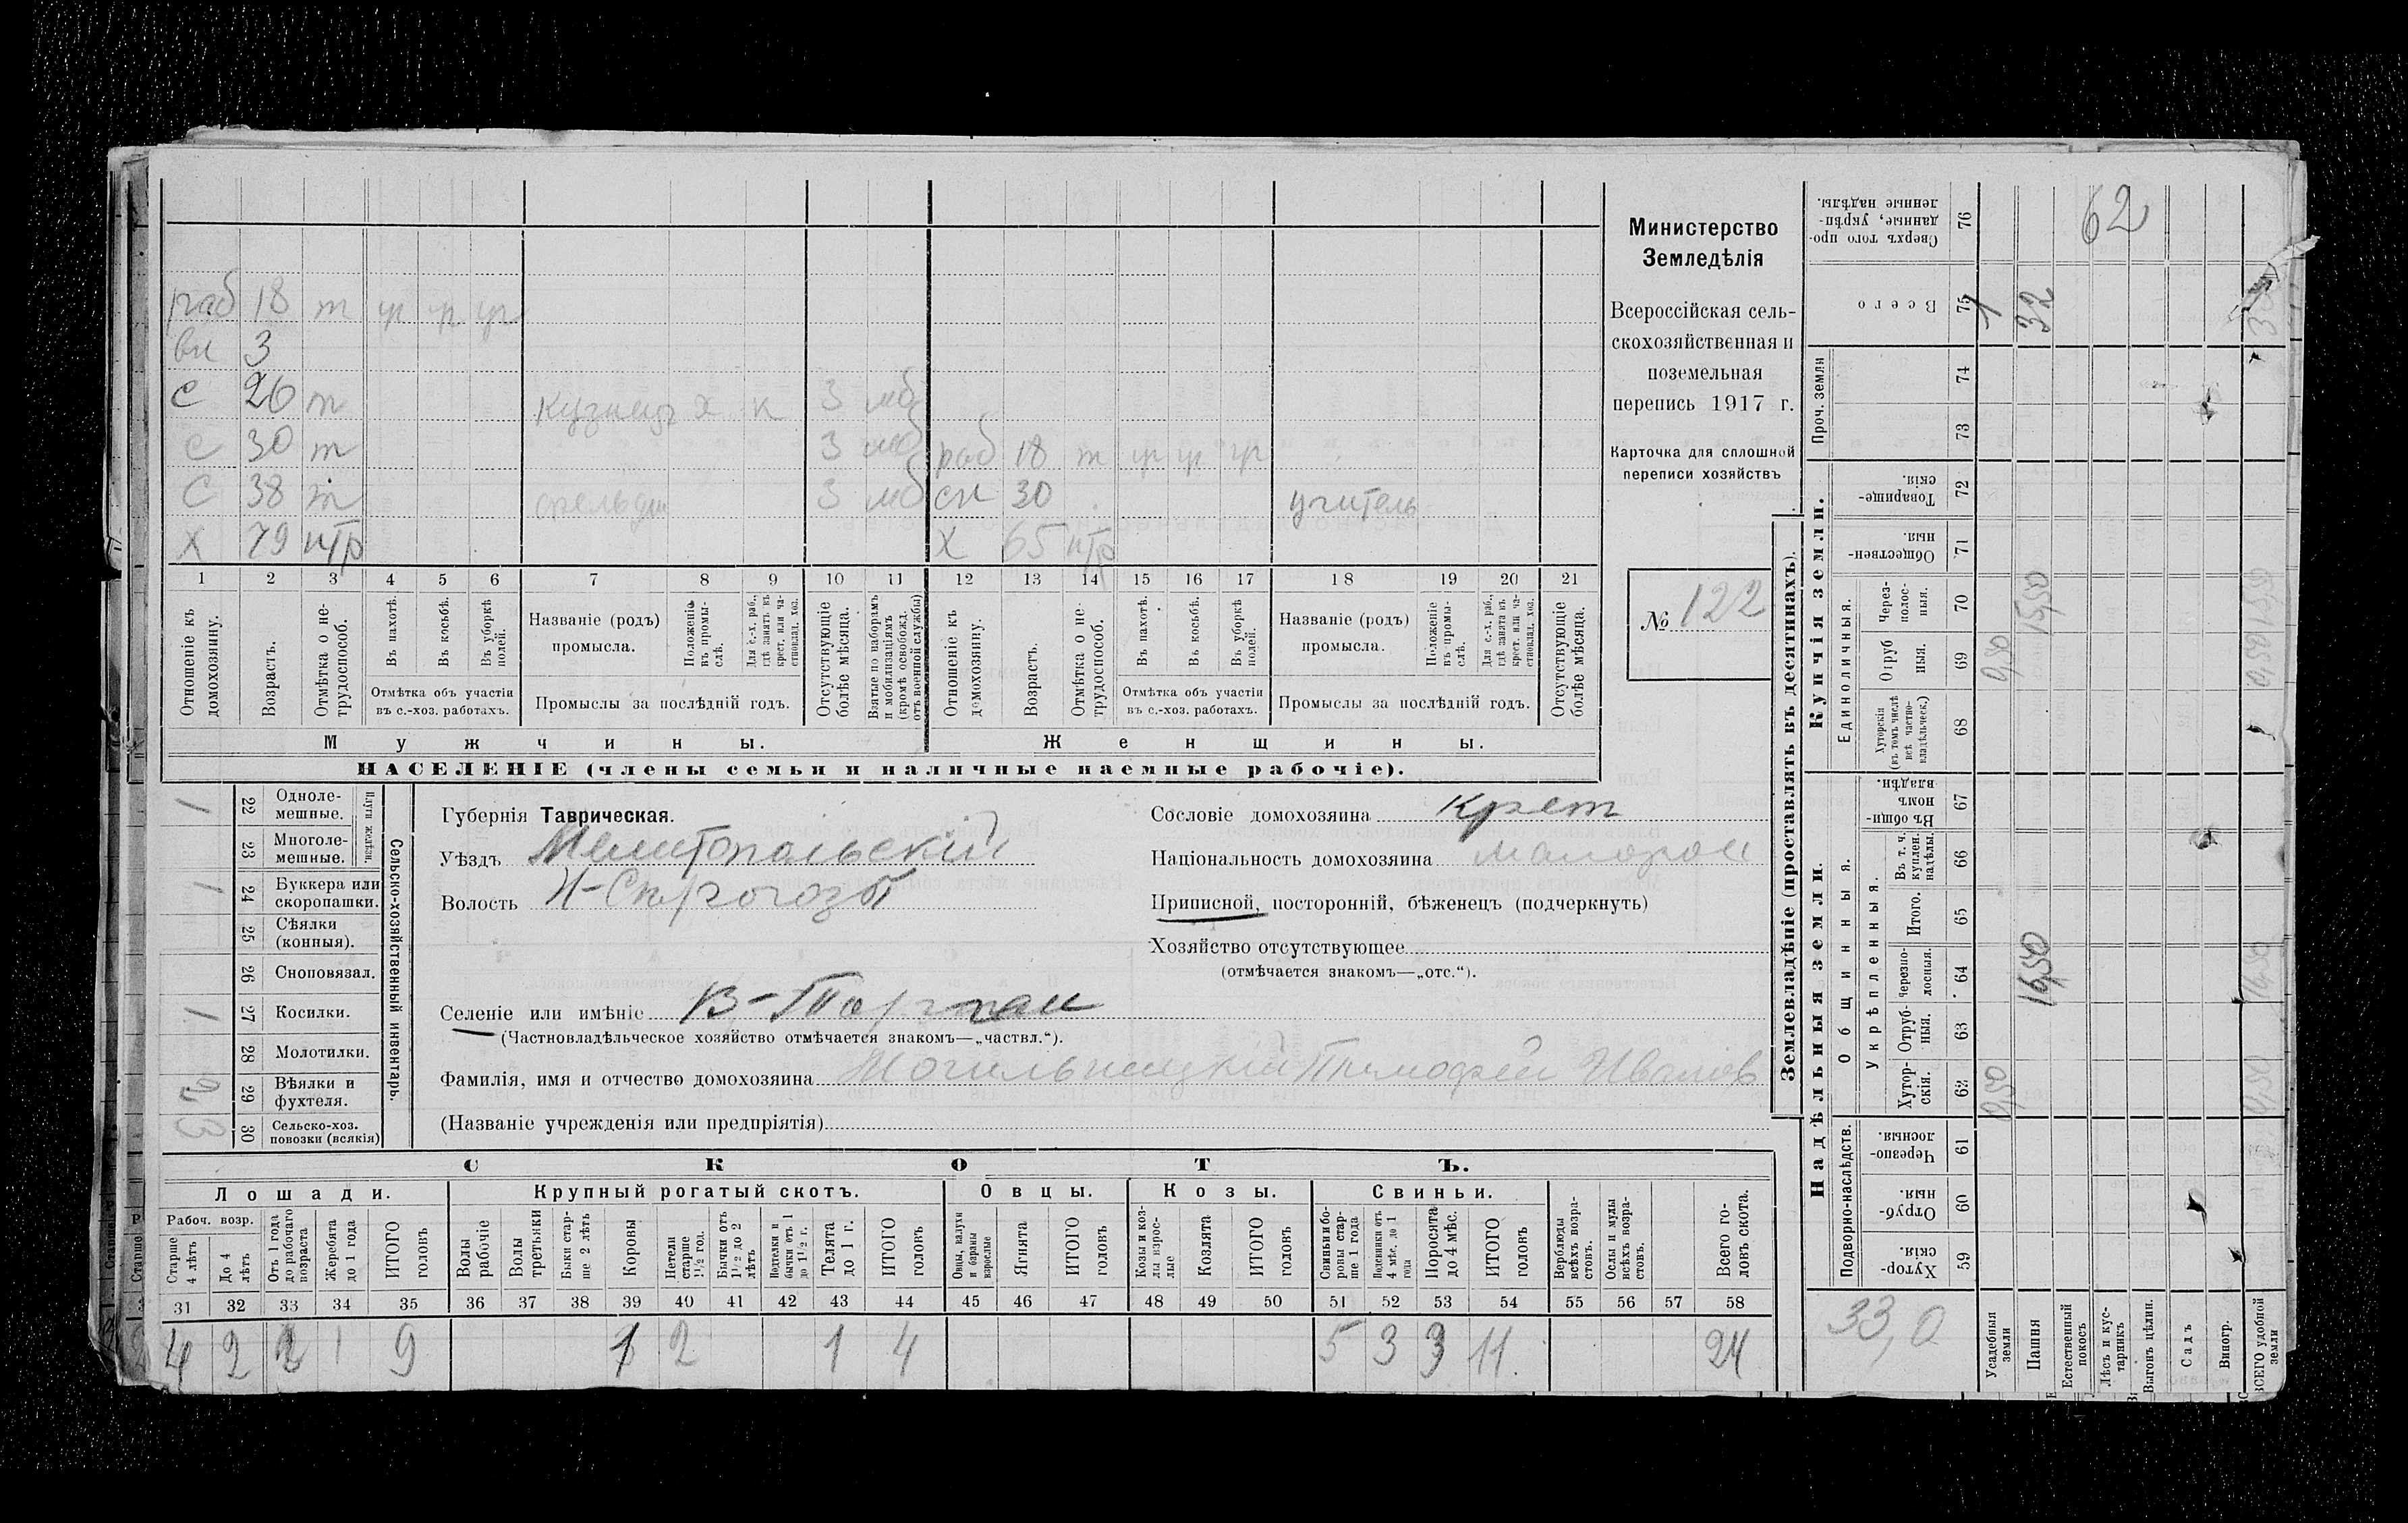 раб 18 т ур ур ур
вн 3
с 26 т кузнец х к 3 мб
с 30 т 3 мб раб 18 т ур ур ур
с 38 т фельдш 3 мб сн 30 учитель
х 79 нтр х 65 нтр
1 2 3 4 5 6 7 8 9 10 11 12 13 14 15 16 17 18 19 20 21
Отношеніе къ домохозяину.
Возрастъ.
Отмѣтка о нетрудоспособ.
Въ пахотѣ.
Въ косьбѣ.
Въ уборкѣ полей.
Отмѣтка объ участіи въ с.-хоз. работахъ.
Названіе (родъ) промысла.
Положеніе въ промыслѣ.
Для с.-х. раб., гдѣ занятъ въ крест. или частновлад. хоз.
Промыслы за послѣдній годъ.
Отсутствующіе болѣе мѣсяца.
Взятые по наборамъ и мобилизаціямъ (кромѣ освобожд. отъ военной службы)
Отношеніе къ домохозяину.
Возрастъ.
Отмѣтка о нетрудоспособ.
Въ пахотѣ.
Въ косьбѣ.
Въ уборкѣ полей.
Отмѣтка объ участіи въ с.-хоз. работахъ.
Названіе (родъ) промысла.
Положеніе въ промыслѣ.
Для с.-х. раб., гдѣ занята въ крест. или частновлад. хоз.
Промыслы за послѣдній годъ.
Отсутствующіе болѣе мѣсяца.
Мужчины. Женщины.
НАСЕЛЕНІЕ (члены семьи и наличные наемные рабочіе).
Министерство
Земледѣлія
Всероссійская сель-
скохозяйственная и
поземельная
перепись 1917 г.
Карточка для сплошной
переписи хозяйствъ
№ 122
1 22 Одноле-мешные.
23 Многоле-мешные.
Плуги желѣзн.
1 24 Буккера или скоропашки.
25 Сѣялки (конныя).
26 Сноповязал.
1 27 Косилки.
28 Молотилки.
2 29 Вѣялки и фухтеля.
3 30 Сельско-хоз. повозки (всякія)
Сельско-хозяйственный инвентарь.
Губернія Таврическая.
Уѣздъ Мелитопольскій
Волость Н-Сѣрогозы
Селеніе или имѣніе В-Торгаи
(Частновладѣльческое хозяйство отмѣчается знакомъ—„частвл.“).
Фамилія, имя и отчество домохозяина Могильницкій Тимофей Иванов
(Названіе учрежденія или предпріятія)
Сословіе домохозяина крест
Національность домохозяина малорос
Приписной, посторонній, бѣженецъ (подчеркнуть)
Хозяйство отсутствующее
(отмѣчается знакомъ—„отс.“).
СКОТЪ.
Лошади. Крупный рогатый скотъ. Овцы. Козы. Свиньи.
Рабоч. возр.
Старше 4 лѣтъ
До 4 лѣтъ
Отъ 1 года до рабочаго возраста
Жеребята до 1 года
ИТОГО головъ
Волы рабочіе
Волы третьяки
Быки старше 2 лѣтъ
Коровы
Нетели старше 1½ год.
Бычки отъ 1½ до 2 лѣтъ
Подтелки и бычки отъ 1 до 1½ г.
Телята до 1 г.
ИТОГО головъ
Овцы, валухи и бараны взрослые
Ягнята
ИТОГО головъ
Козы и козлы взрослые
Козлята
ИТОГО головъ
Свиньи и боровы старше 1 года
Подсвинки отъ 4 мѣс. до 1 года
Поросята до 4 мѣс.
ИТОГО головъ
Верблюды всѣхъ возрастовъ.
Ослы и мулы всѣхъ возрастовъ.
Всего головъ скота.
31 32 33 34 35 36 37 38 39 40 41 42 43 44 45 46 47 48 49 50 51 52 53 54 55 56 57 58
4 2 2 1 9 1 2 1 4 5 3 3 11. 24
Землевладѣніе (проставлять въ десятинахъ).
Сверхъ того проданные, укрѣпленные надѣлы. 76 62
Всего 75 1 32
Проч. земля
74
73
Купчія земли.
Товарищескія. 72
Общественныя. 71
Единоличныя.
Черезполосныя. 70 15,50
Отрубныя. 69 0,50
Хуторскія (въ томъ числѣ всѣ частновладѣльческ.) 68
Надѣльныя земли.
Общинныя.
Въ общинномъ владѣн. 67
Укрѣпленныя.
Въ т. ч. куплен. надѣлы. 66
Итого. 65
Черезполосныя. 64 16,50
Отрубныя. 63
Хуторскія. 62 0,50
Подворно-наслѣдств.
Черезполосныя. 61
Отрубныя. 60
Хуторскія. 59
33,0
Усадебныя земли
Пашня
Естественный покосъ
Лѣсъ и кустарникъ
Выгонъ цѣлин.
Садъ
Виногр.
ВСЕГО удобной земли